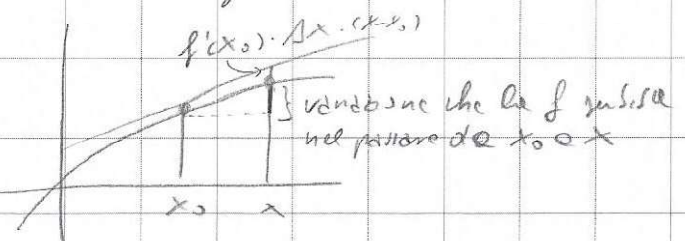 f'(x₀)·Δx·(x-x₀)
variazione che la f subisce
nel passare da x₀ a x
x₀ x